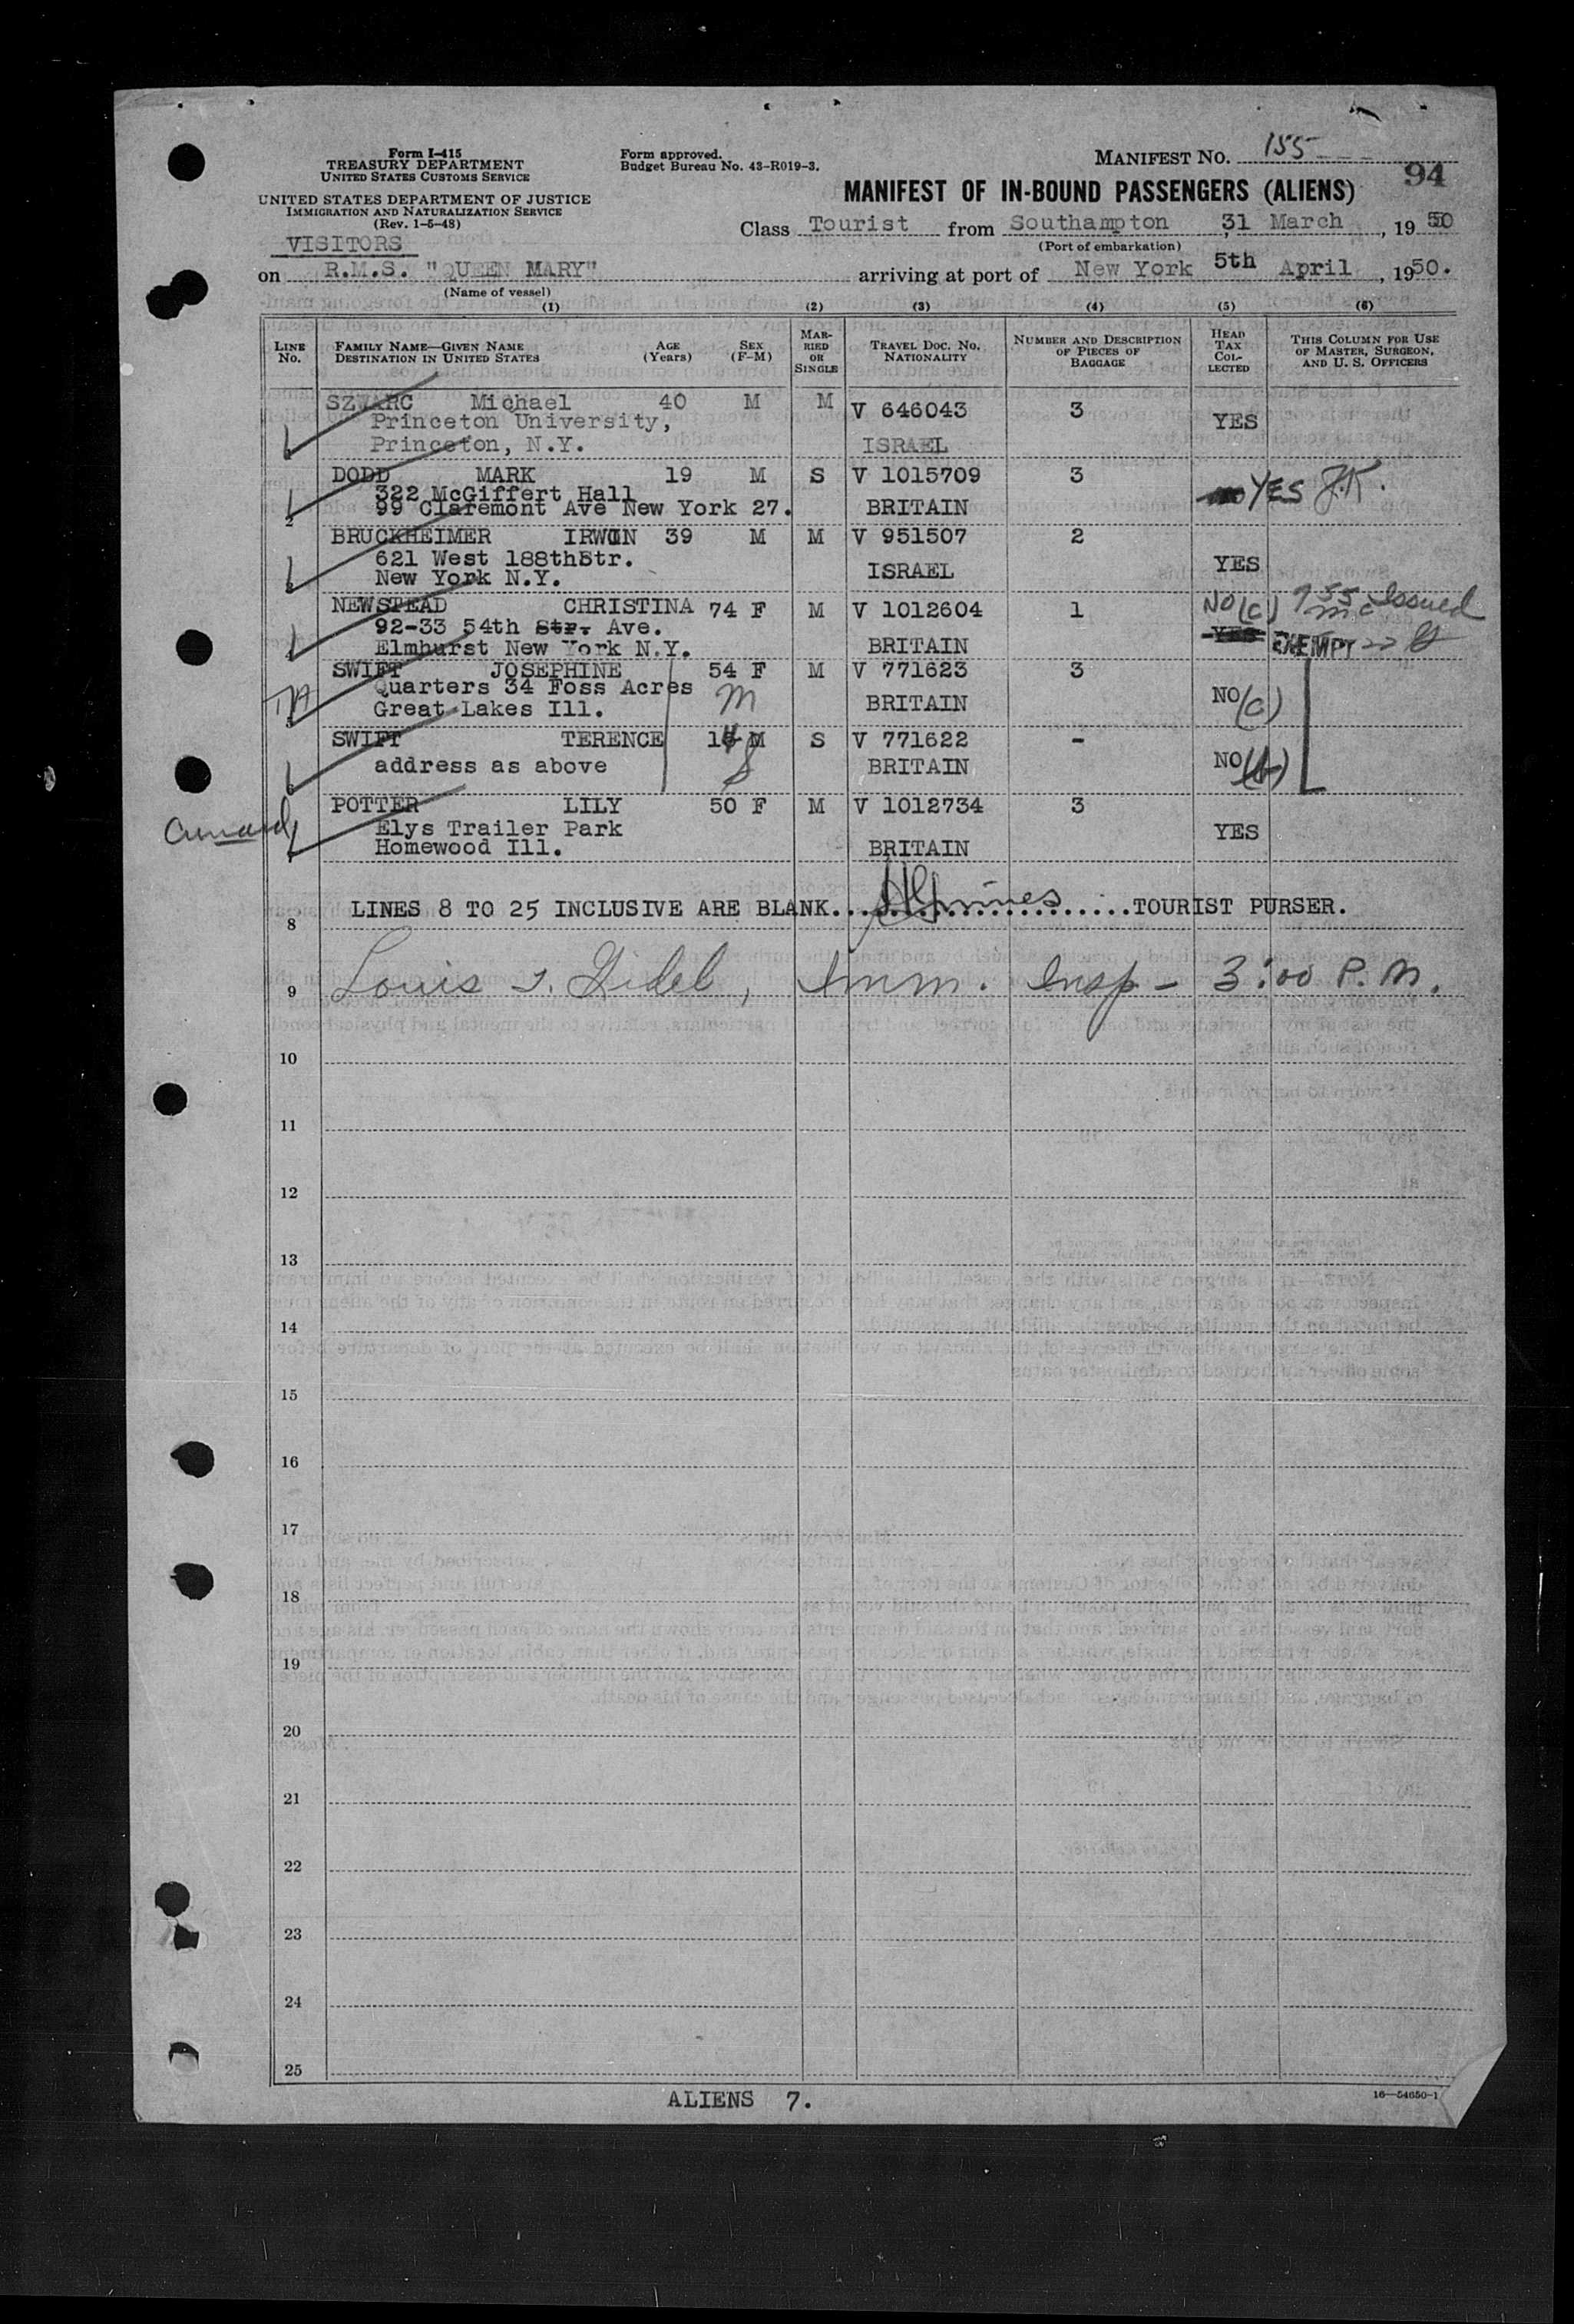 Form I-415
TREASURY DEPARTMENT
UNITED STATES CUSTOMS SERVICE
UNITED STATES DEPARTMENT OF JUSTICE
IMMIGRATION AND NATURALIZATION SERVICE
(Rev. 1-5-48)
Form approved.
Budget Bureau No. 43-R019-3.
MANIFEST NO. 155
94
MANIFEST OF IN-BOUND PASSENGERS (ALIENS)
Class Tourist from Southampton, 31 March, 1950
(Port of embarkation)
VISITORS
on R.M.S. "QUEEN MARY" arriving at port of New York 5th April, 1950.
(Name of vessel)
(1) (2) (3) (4) (5) (6)
LINE No. FAMILY NAME—GIVEN NAME DESTINATION IN UNITED STATES AGE (Years) SEX (F-M) MARRIED OR SINGLE TRAVEL DOC. NO. NATIONALITY NUMBER AND DESCRIPTION OF PIECES OF BAGGAGE HEAD TAX COLLECTED THIS COLUMN FOR USE OF MASTER, SURGEON, AND U. S. OFFICERS
SZWARC Michael 40 M M V 646043 3
Princeton University, YES
Princeton, N.Y. ISRAEL
DODD MARK 19 M S V 1015709 3
322 McGiffert Hall YES J.K.
2 99 Claremont Ave New York 27. BRITAIN
BRUCKHEIMER IRWIN 39 M M V 951507 2
621 West 188thStr. YES
New York N.Y. ISRAEL
NEWSTEAD CHRISTINA 74 F M V 1012604 1 NO (c) 755 Issued
92-33 54th Str. Ave. YES EXEMPT
Elmhurst New York N.Y. BRITAIN
SWIFT JOSEPHINE 54 F M V 771623 3
Quarters 34 Foss Acres M NO (c)
Great Lakes Ill. BRITAIN
SWIFT TERENCE 14 M S V 771622 -
address as above S BRITAIN NO
POTTER LILY 50 F M V 1012734 3
Cunard Elys Trailer Park YES
Homewood Ill. BRITAIN
8 LINES 8 TO 25 INCLUSIVE ARE BLANK. TOURIST PURSER.
9 Louis Imm. Insp - 3:00 P.M.
10
11
12
13
14
15
16
17
18
19
20
21
22
23
24
25
ALIENS 7.
16—54650-1